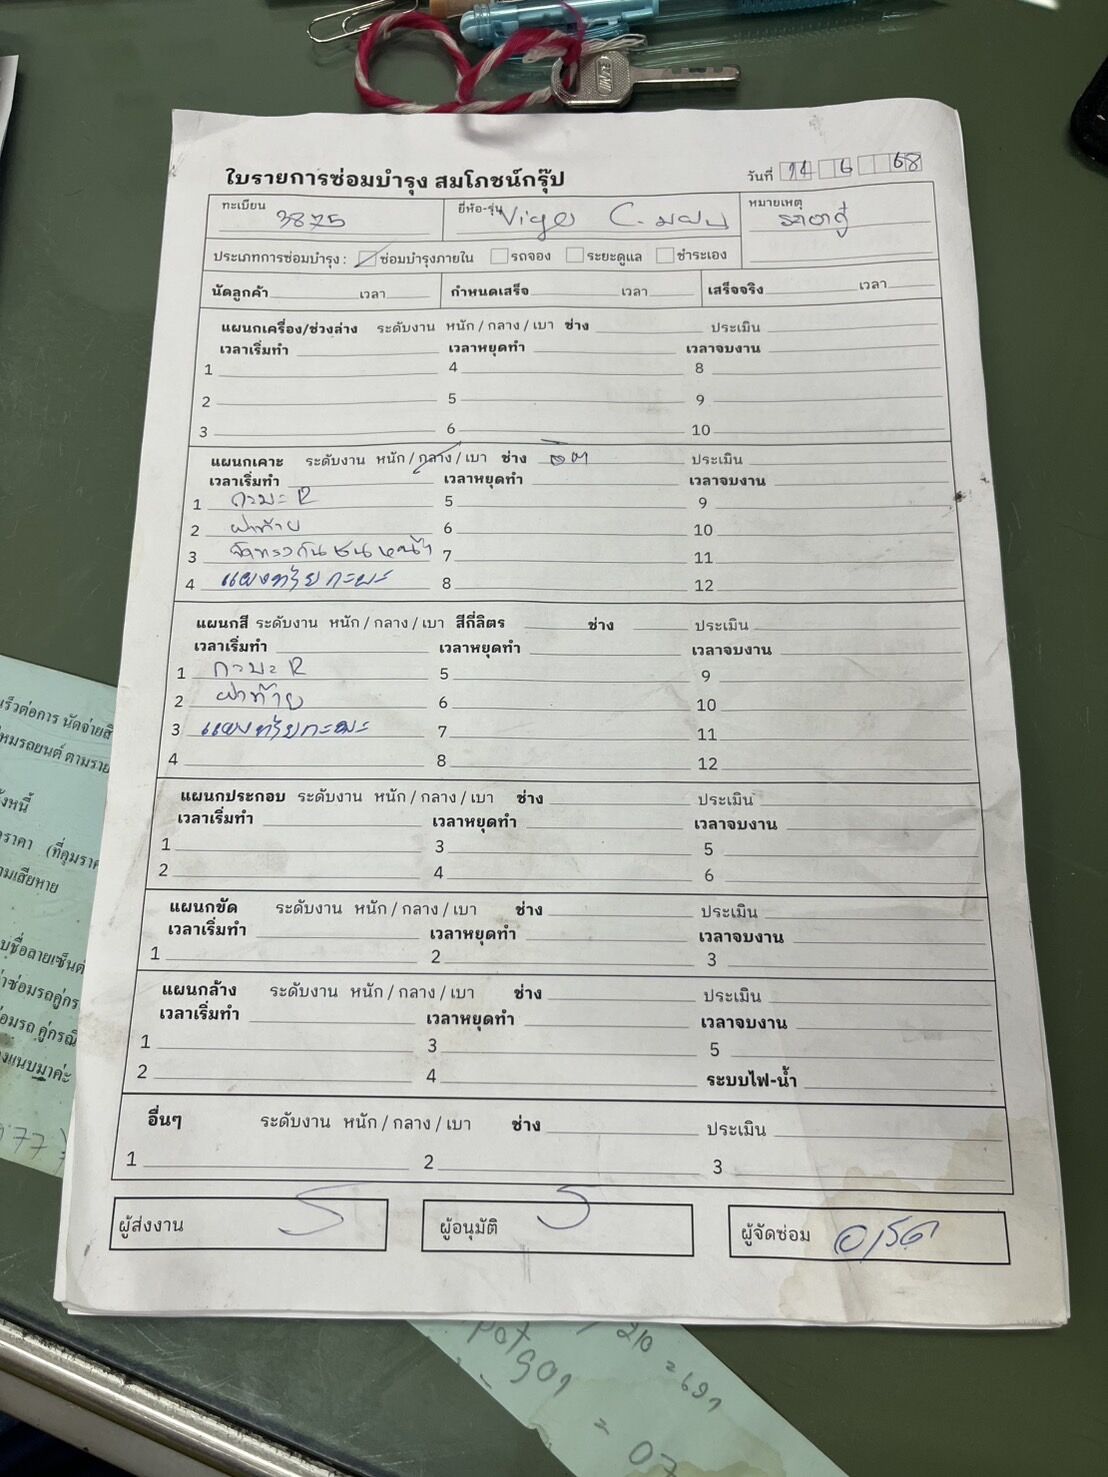 ใบรายการซ่อมบำรุง สมโภชน์กรุ๊ป
วันที่ 14 6 68
ทะเบียน 3875
ยี่ห้อ-รุ่น Vigo C.
หมายเหตุ
ประเภทการซ่อมบำรุง : ซ่อมบำรุงภายใน รถจอง ระยะดูแล ชำระเอง
นัดลูกค้า เวลา กำหนดเสร็จ เวลา เสร็จจริง เวลา
แผนกเครื่อง/ช่วงล่าง ระดับงาน หนัก / กลาง / เบา ช่าง ประเมิน
เวลาเริ่มทำ เวลาหยุดทำ เวลาจบงาน
1 4 8
2 5 9
3 6 10
แผนกเคาะ ระดับงาน หนัก / กลาง / เบา ช่าง ประเมิน
เวลาเริ่มทำ เวลาหยุดทำ เวลาจบงาน
1 กระบะ R 5 9
2 ฝาท้าย 6 10
3 จัดทรงกันชนหน้า 7 11
4 แผงท้ายกะบะ 8 12
แผนกสี ระดับงาน หนัก / กลาง / เบา สีกี่ลิตร ช่าง ประเมิน
เวลาเริ่มทำ เวลาหยุดทำ เวลาจบงาน
1 กระบะ R 5 9
2 ฝาท้าย 6 10
3 แผงท้ายกะบะ 7 11
4 8 12
แผนกประกอบ ระดับงาน หนัก / กลาง / เบา ช่าง ประเมิน
เวลาเริ่มทำ เวลาหยุดทำ เวลาจบงาน
1 3 5
2 4 6
แผนกขัด ระดับงาน หนัก / กลาง / เบา ช่าง ประเมิน
เวลาเริ่มทำ เวลาหยุดทำ เวลาจบงาน
1 2 3
แผนกล้าง ระดับงาน หนัก / กลาง / เบา ช่าง ประเมิน
เวลาเริ่มทำ เวลาหยุดทำ เวลาจบงาน
1 3 5
2 4 ระบบไฟ-น้ำ
อื่นๆ ระดับงาน หนัก / กลาง / เบา ช่าง ประเมิน
1 2 3
ผู้ส่งงาน ผู้อนุมัติ ผู้จัดซ่อม